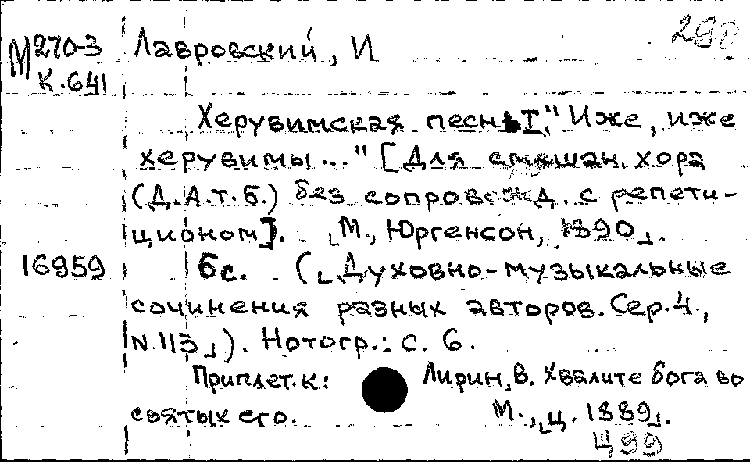 М270-3 Лавровский, И 298
К.641
Херувимская песнь I. "Иже, иже
херувимы..." [Для смешан. хора
(Д.А.т.Б.) без сопровожд. с репети-
ционом]. М., Юргенсон, 1890.
16959 6с. (Духовно-музыкальные
сочинения разных авторов. Сер.4.,
N.113). Нотогр.: с. 6.
Приплет. к: Лирин, В. Хвалите бога во
святых его. М., ц. 1889.
499